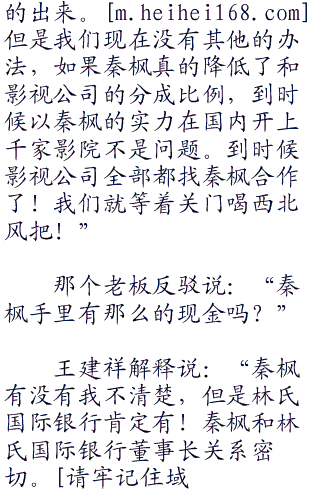 的出来。[m.heihei168.com]
但是我们现在没有其他的办
法，如果秦枫真的降低了和
影视公司的分成比例，到时
候以秦枫的实力在国内开上
千家影院不是问题。到时候
影视公司全部都找秦枫合作
了！我们就等着关门喝西北
风把！”
那个老板反驳说：“秦
枫手里有那么的现金吗？”
王建祥解释说：“秦枫
有没有我不清楚，但是林氏
国际银行肯定有！秦枫和林
氏国际银行董事长关系密
切。[请牢记住域